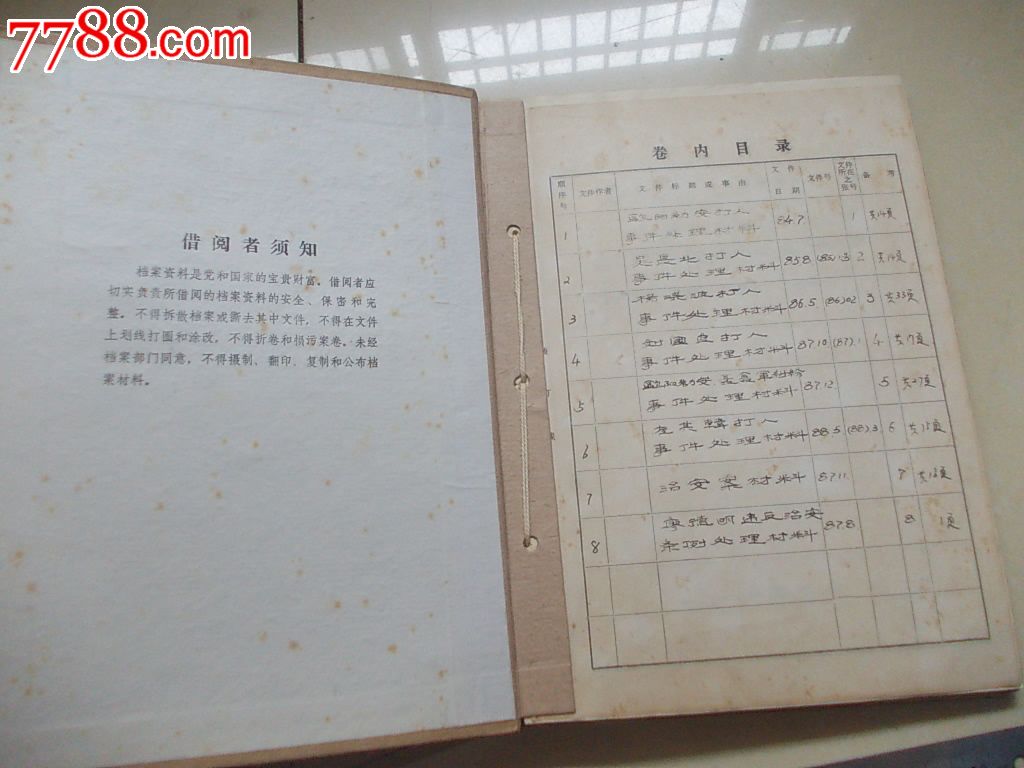 7788.com
借阅者须知
档案资料是党和国家的宝贵财富。借阅者应
切实负责所借阅的档案资料的安全、保密和完
整。不得拆散档案或撕去其中文件,不得在文件
上划线打圈和涂改,不得折卷和损污案卷。未经
档案部门同意,不得摄制、翻印、复制和公布档
案材料。
卷内目录
顺序号 文件作者 文件标题或事由 文件日期 文件号 文件所在之张号 备考
打人
1 事件处理材料 84.7 1 共14页
打人
2 事件处理材料 85.8 2
打人
3 事件处理材料 86.5 (86)02 3 共33页
打人
4 事件处理材料 87.10 (87).1 4 共17页
5 事件处理材料 87.12 5 共27页
打人
6 事件处理材料 88.5 (88).3 6 共15页
7 治安案材料 87.11 7
明违反治安
8 条例处理材料 87.8 8 1页